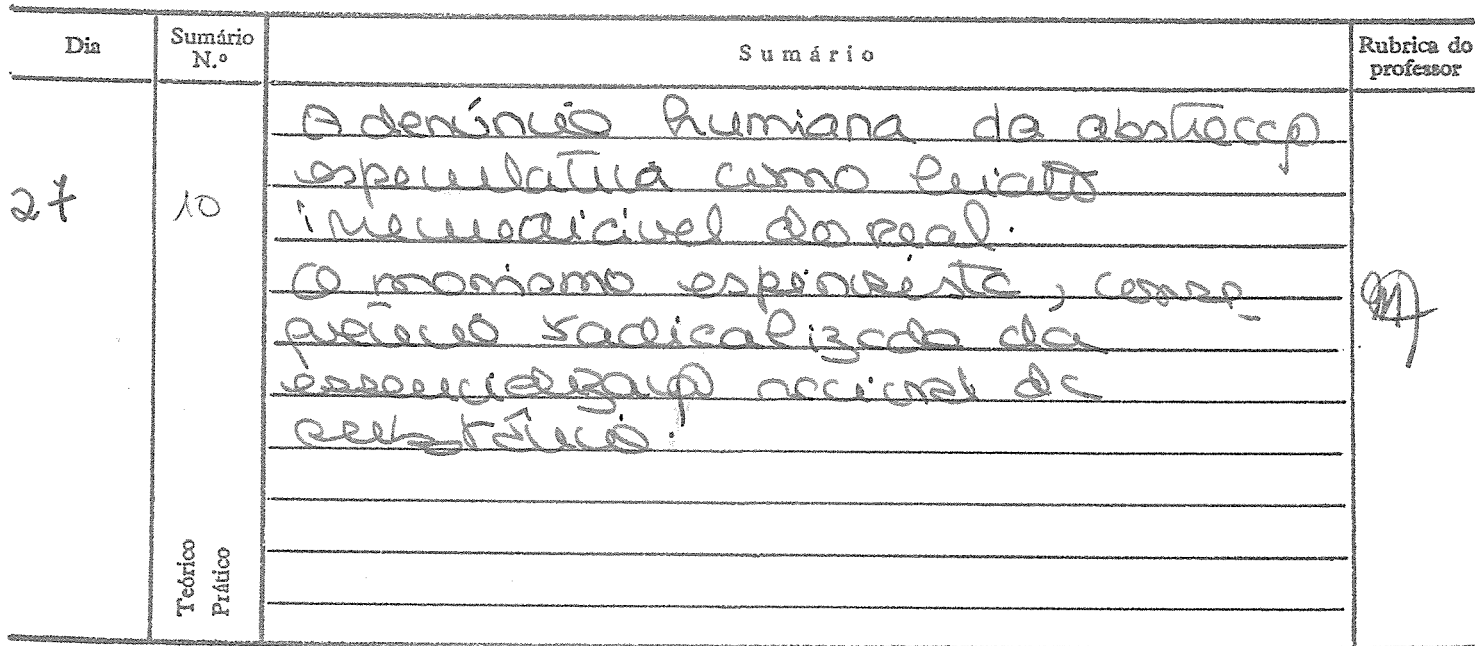 Dia
Sumário N.º
Sumário
Rubrica do professor
27
10
A denúncia humiana da abstracção
especulativa como
do real.
O monismo espinosista, conse-
quência radicalizada da
essencialização racional da
substância.
Teórico
Prático